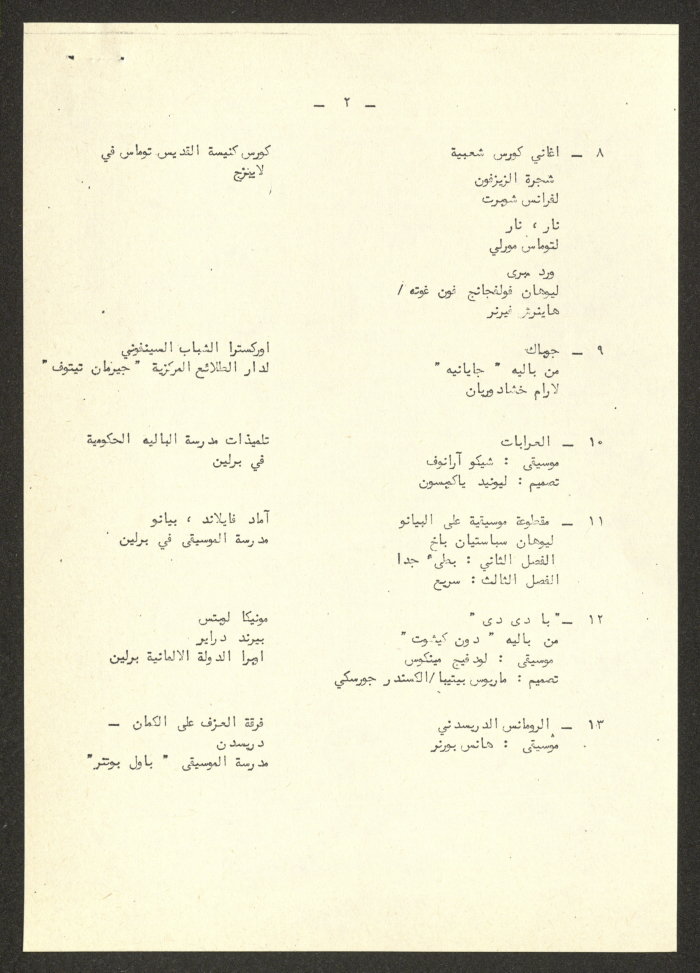 — ٢ —
٨ — اغاني كورس شعبية
شجرة الزيزفون
لفرانس شوبرت
نار ، نار
لتوماس مورلي
ورد بري
ليوهان فولفجانج فون غوته /
هاينرش فيرنر
كورس كنيسة القديس توماس في
لايبزج
٩ — جوباك
من باليه " جايانيه "
لارام خشادوريان
اوركسترا الشباب السينفوني
لدار الطلائع المركزية " جيرمان تيتوف "
١٠ — العرابات
موسيقى : شيكو آرانوف
تصميم : ليونيد ياكبسون
تلميذات مدرسة الباليه الحكومية
في برلين
١١ — مقطوعة موسيقية على البيانو
ليوهان سباستيان باخ
الفصل الثاني : بطيء جدا
الفصل الثالث : سريع
آماد فايلاند ، بيانو
مدرسة الموسيقى في برلين
١٢ — " با دى دى "
من باليه " دون كيشوت "
موسيقى : لودفيج مينكوس
تصميم : ماريوس بيتيبا/الكسندر جورسكي
مونيكا لوبتس
بيرند دراير
اوبرا الدولة الالمانية برلين
١٣ — الرومانس الدريسدني
موسيقى : هانس بورنر
فرقة العزف على الكمان —
دريسدن
مدرسة الموسيقى " باول بوتتر "